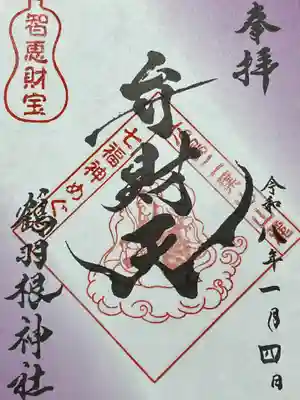 奉拝
智恵財宝
弁財天
七福神めぐ
令和八年一月四日
鶴羽根神社